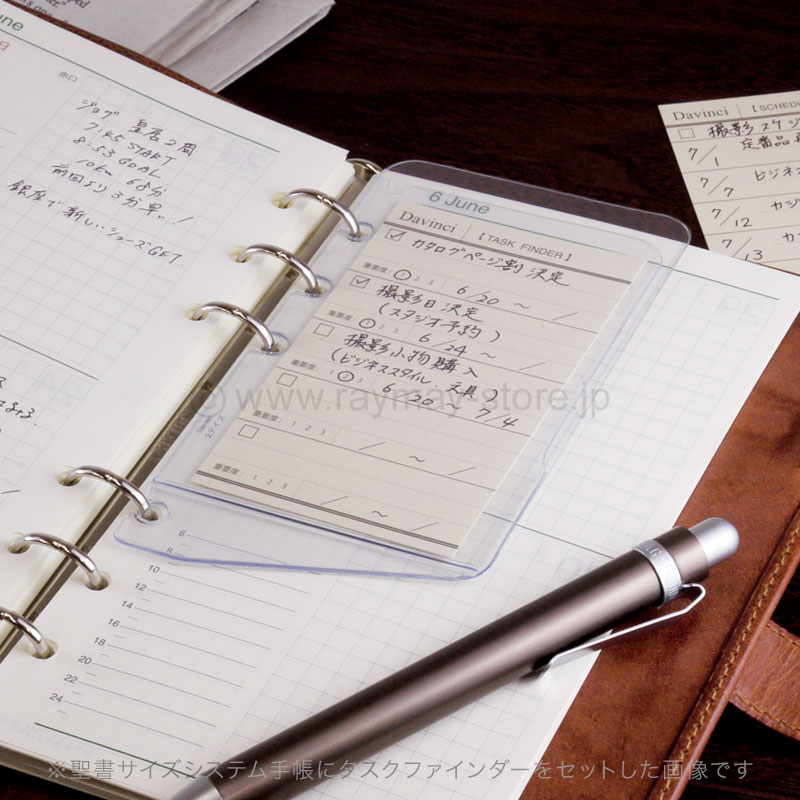 une
日
赤口
ジョグ 皇居2周
7:45 START
8:53 GOAL
10km 68分
前回より3分早い!
銀座で新しいシューズGET.
6 June
Davinci 【TASK FINDER】
カタログページ割 決定
重要度: 1 2 3 6/20 ~ /
撮影日決定
(スタジオ予約)
重要度: 1 2 3 6/24 ~ /
撮影小物購入
(ビジネススタイル 文具)
重要度: 1 2 3 6/20 ~ 7/4
重要度: 1 2 3 / ~ /
重要度: 1 2 3 / ~ /
Davinci 【SCHEDU
撮影スケジ
7/1 定番品
7/7 ビジネス
7/12 カジ
7/13 カン
© www.raymay-store.jp
6
8
10
12
14
16
18
20
22
24
※聖書サイズシステム手帳にタスクファインダーをセットした画像です